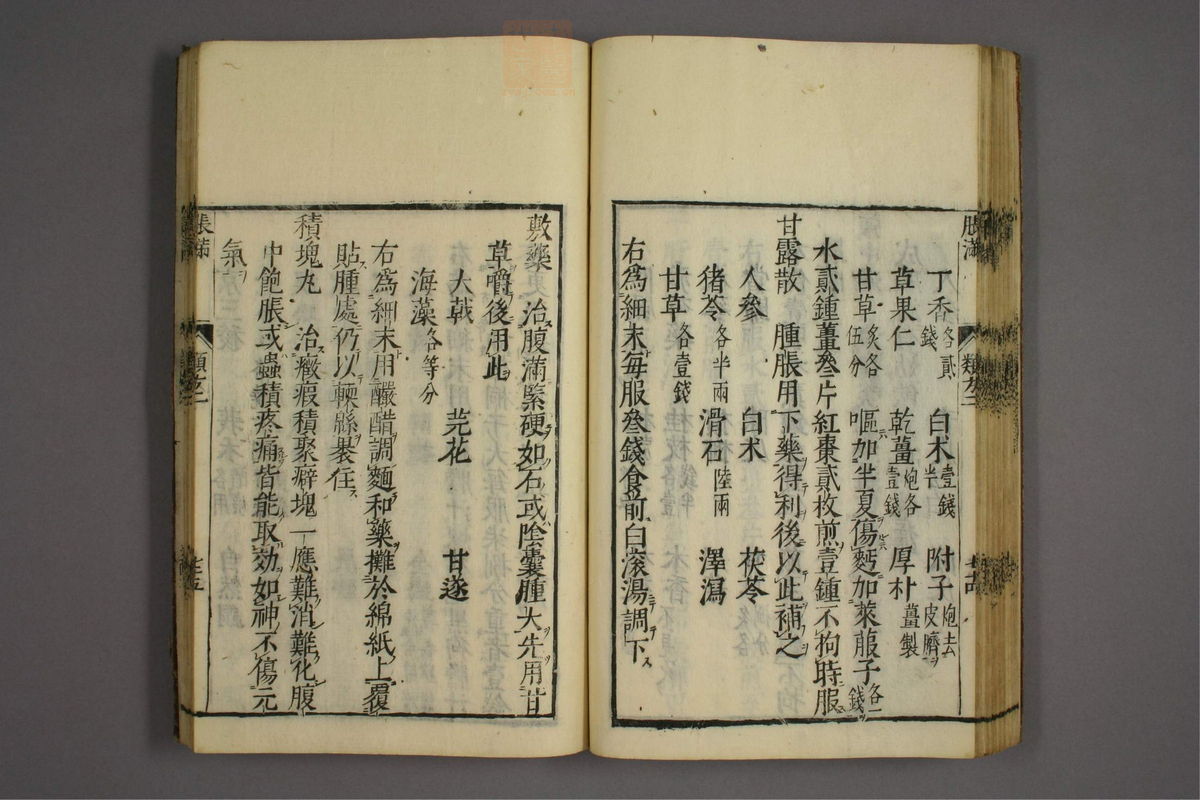 脹滿
丁香各貳錢 白朮壹錢半 附子炮去皮臍
草果仁 乾薑炮各壹錢 厚朴薑製
甘草炙各伍分 嘔加半夏傷麪加萊菔子各一錢
水貳鍾薑叄片紅棗貳枚煎壹鍾不拘時服
甘露散 腫脹用下藥得利後以此補之
人參 白朮 茯苓
猪苓各半兩 滑石陸兩 澤瀉
甘草各壹錢
右爲細末每服叄錢食前白滾湯調下
敷藥 治腹滿緊硬如石或陰囊腫大先用甘
草嚼後用此
大戟 芫花 甘遂
海藻各等分
右爲細末用釅醋調麵和藥攤於綿紙上覆
貼腫處仍以輭緜裹住
積塊丸 治癥瘕積聚癖塊一應難消難化腹
中飽脹或蟲積疼痛皆能取効如神不傷元
氣